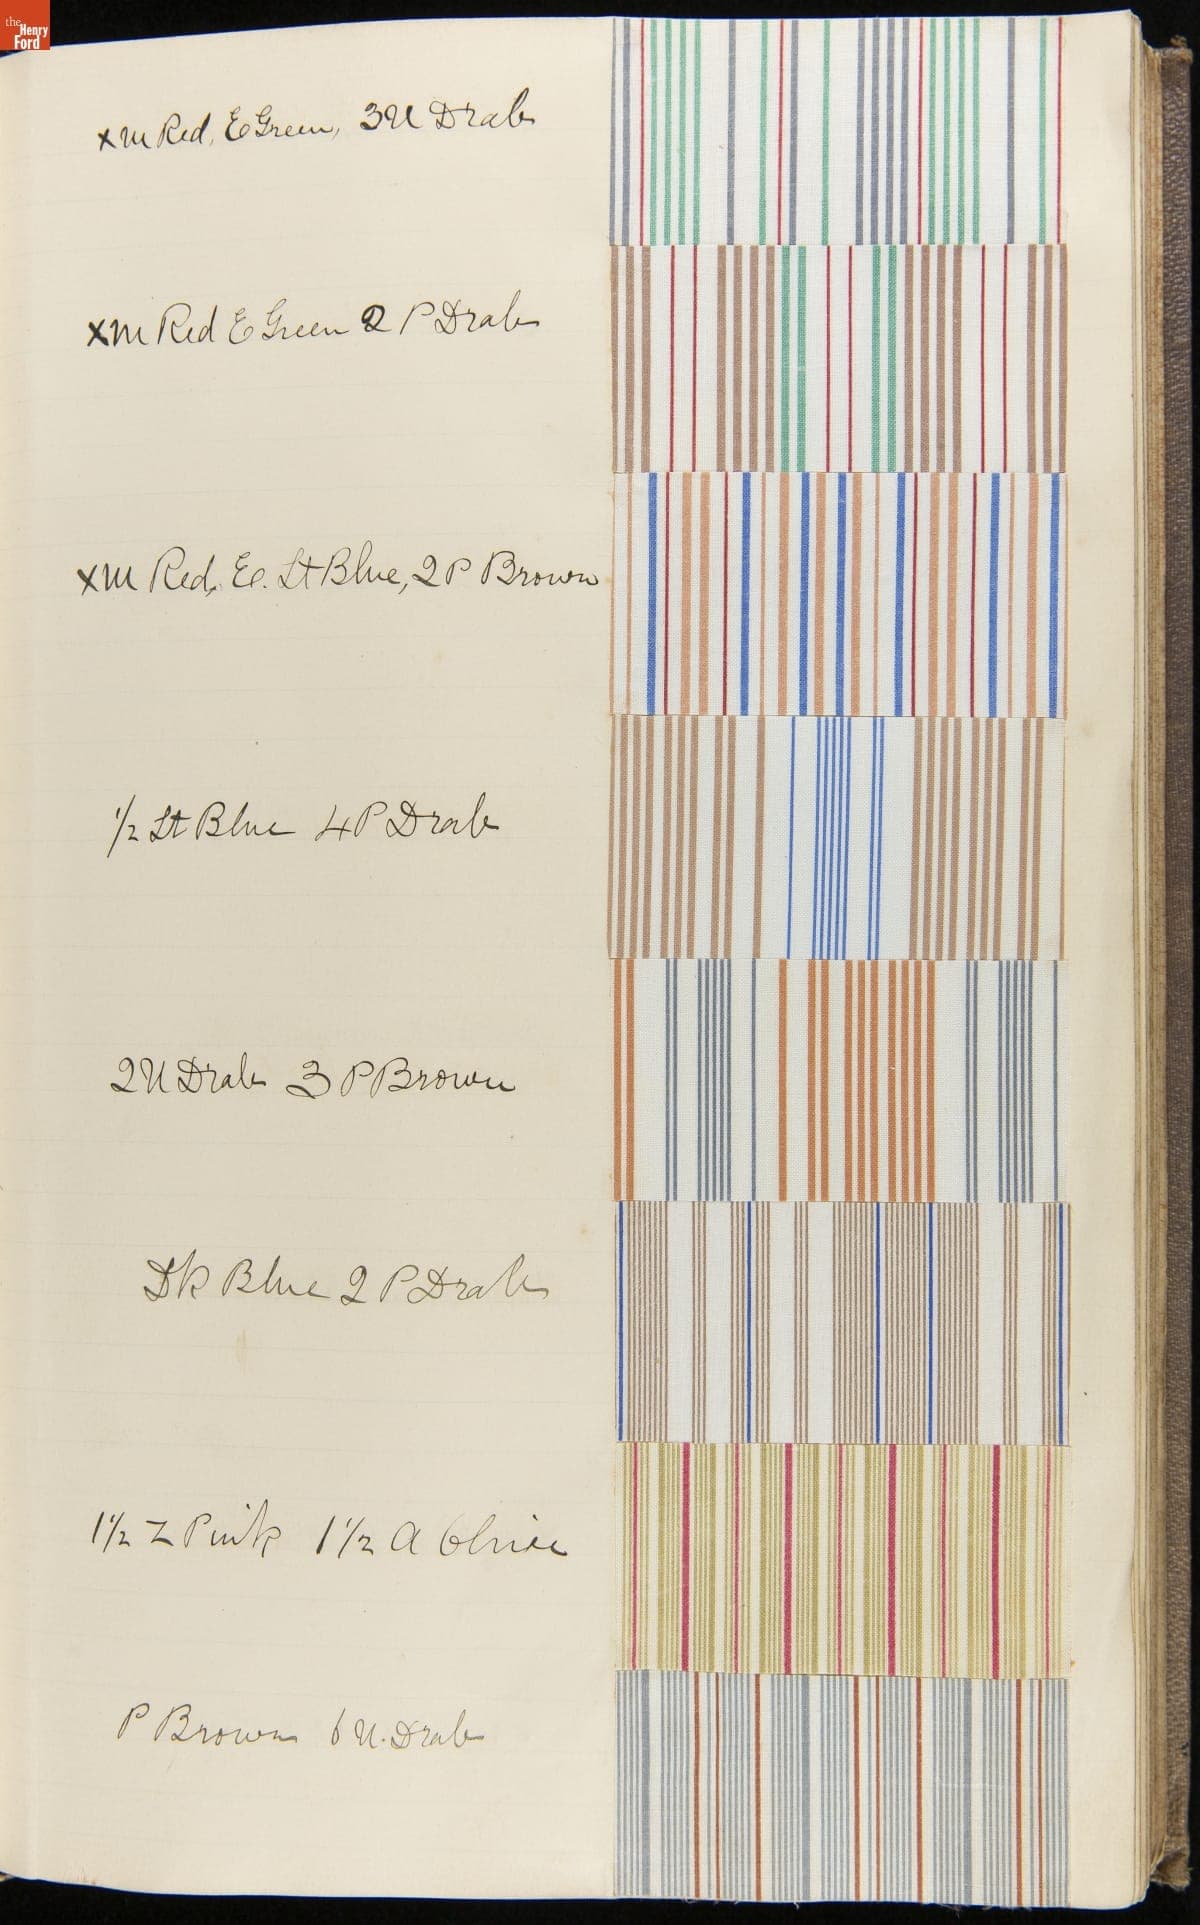 the
Henry
Ford
x m Red, E Green, 3 U Drab
x m Red E Green 2 P Drab
x m Red, E. Lt Blue, 2 P Brown
1/2 Lt Blue 4 P Drab
2 U Drab 3 P Brown
Dk Blue 2 P Drab
1 1/2 Z Pink 1 1/2 A Olive
P Brown 6 U. Drab